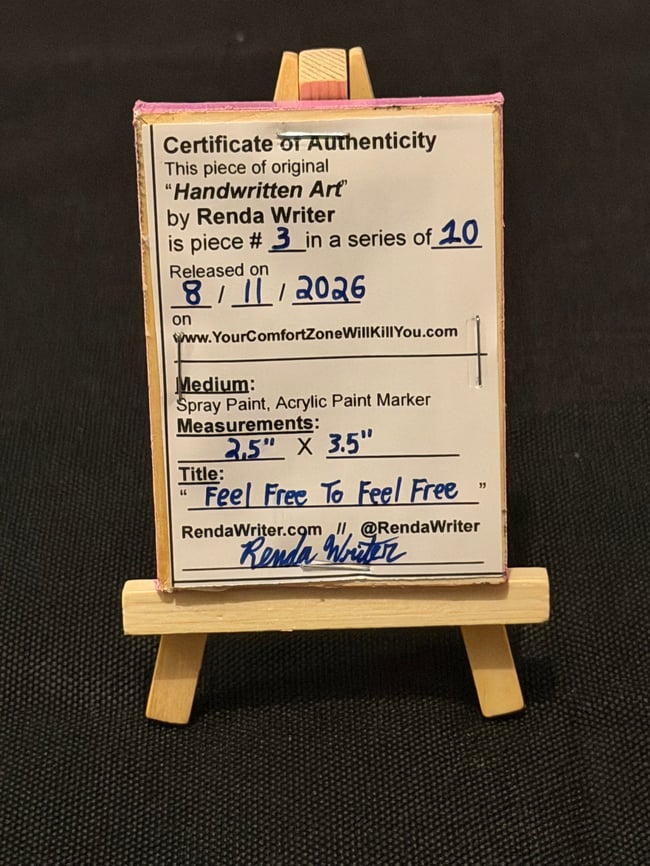 Certificate of Authenticity
This piece of original
"Handwritten Art"
by Renda Writer
is piece # 3 in a series of 10
Released on
8 / 11 / 2026
on
www.YourComfortZoneWillKillYou.com
Medium:
Spray Paint, Acrylic Paint Marker
Measurements:
2.5" X 3.5"
Title:
" Feel Free To Feel Free "
RendaWriter.com // @RendaWriter
Renda Writer